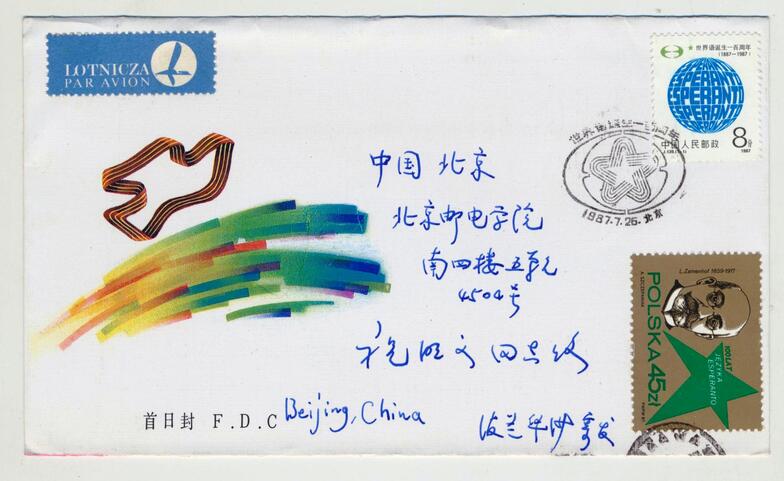 LOTNICZA
PAR AVION
世界语诞生一百周年
(1887-1987)
ESPERANTO
ESPERANTO
ESPERANTO
中国人民邮政
8分
J.139.(1-1)
1987
世界语诞生一百周年
1987.7.26.北京
中国 北京
北京邮电学院
南四楼五单元
4504号
Beijing, China
波兰华沙寄发
首日封 F.D.C
L.Zamenhof 1859-1917
POLSKA 45zł
100 LAT
JĘZYKA
ESPERANTO